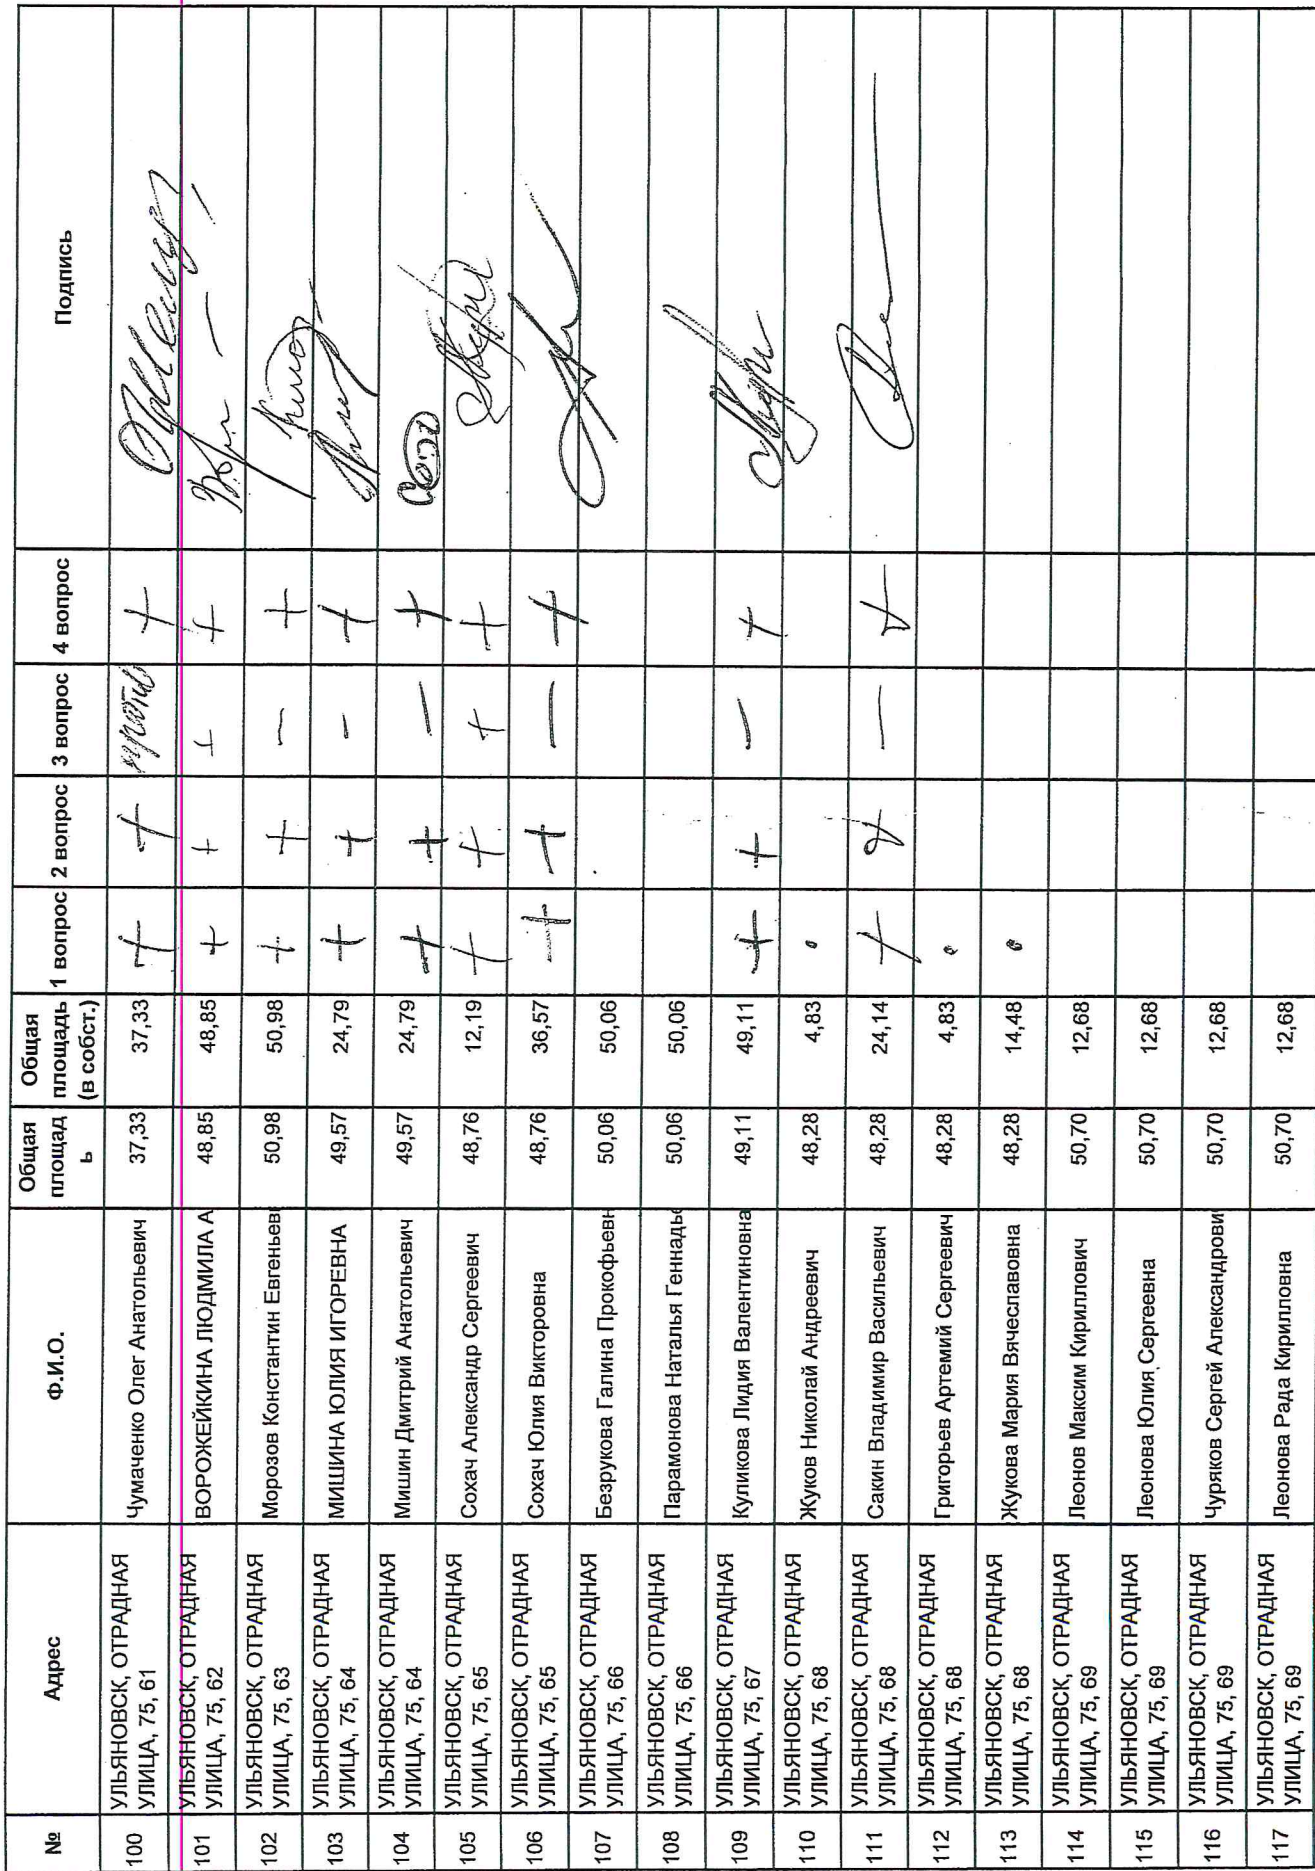 № Адрес Ф.И.О. Общая площадь Общая площадь (в собст.) 1 вопрос 2 вопрос 3 вопрос 4 вопрос Подпись
100 УЛЬЯНОВСК, ОТРАДНАЯ УЛИЦА, 75, 61 Чумаченко Олег Анатольевич 37,33 37,33 + + против +
101 УЛЬЯНОВСК, ОТРАДНАЯ УЛИЦА, 75, 62 ВОРОЖЕЙКИНА ЛЮДМИЛА А 48,85 48,85 + + + +
102 УЛЬЯНОВСК, ОТРАДНАЯ УЛИЦА, 75, 63 Морозов Константин Евгеньеви 50,98 50,98 + + – +
103 УЛЬЯНОВСК, ОТРАДНАЯ УЛИЦА, 75, 64 МИШИНА ЮЛИЯ ИГОРЕВНА 49,57 24,79 + + – +
104 УЛЬЯНОВСК, ОТРАДНАЯ УЛИЦА, 75, 64 Мишин Дмитрий Анатольевич 49,57 24,79 + + – +
105 УЛЬЯНОВСК, ОТРАДНАЯ УЛИЦА, 75, 65 Сохач Александр Сергеевич 48,76 12,19 + + + +
106 УЛЬЯНОВСК, ОТРАДНАЯ УЛИЦА, 75, 65 Сохач Юлия Викторовна 48,76 36,57 + + – +
107 УЛЬЯНОВСК, ОТРАДНАЯ УЛИЦА, 75, 66 Безрукова Галина Прокофьевн 50,06 50,06
108 УЛЬЯНОВСК, ОТРАДНАЯ УЛИЦА, 75, 66 Парамонова Наталья Геннадьс 50,06 50,06
109 УЛЬЯНОВСК, ОТРАДНАЯ УЛИЦА, 75, 67 Куликова Лидия Валентиновна 49,11 49,11 + + – +
110 УЛЬЯНОВСК, ОТРАДНАЯ УЛИЦА, 75, 68 Жуков Николай Андреевич 48,28 4,83
111 УЛЬЯНОВСК, ОТРАДНАЯ УЛИЦА, 75, 68 Сакин Владимир Васильевич 48,28 24,14 + + – +
112 УЛЬЯНОВСК, ОТРАДНАЯ УЛИЦА, 75, 68 Григорьев Артемий Сергеевич 48,28 4,83
113 УЛЬЯНОВСК, ОТРАДНАЯ УЛИЦА, 75, 68 Жукова Мария Вячеславовна 48,28 14,48
114 УЛЬЯНОВСК, ОТРАДНАЯ УЛИЦА, 75, 69 Леонов Максим Кириллович 50,70 12,68
115 УЛЬЯНОВСК, ОТРАДНАЯ УЛИЦА, 75, 69 Леонова Юлия Сергеевна 50,70 12,68
116 УЛЬЯНОВСК, ОТРАДНАЯ УЛИЦА, 75, 69 Чуряков Сергей Александрови 50,70 12,68
117 УЛЬЯНОВСК, ОТРАДНАЯ УЛИЦА, 75, 69 Леонова Рада Кирилловна 50,70 12,68